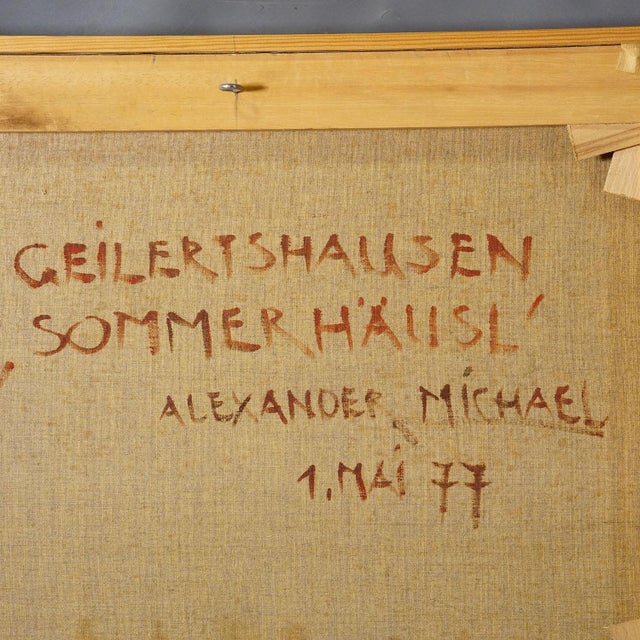 GEILERTSHAUSEN
‚SOMMERHÄUSL'
ALEXANDER MICHAEL
1. MAI 77